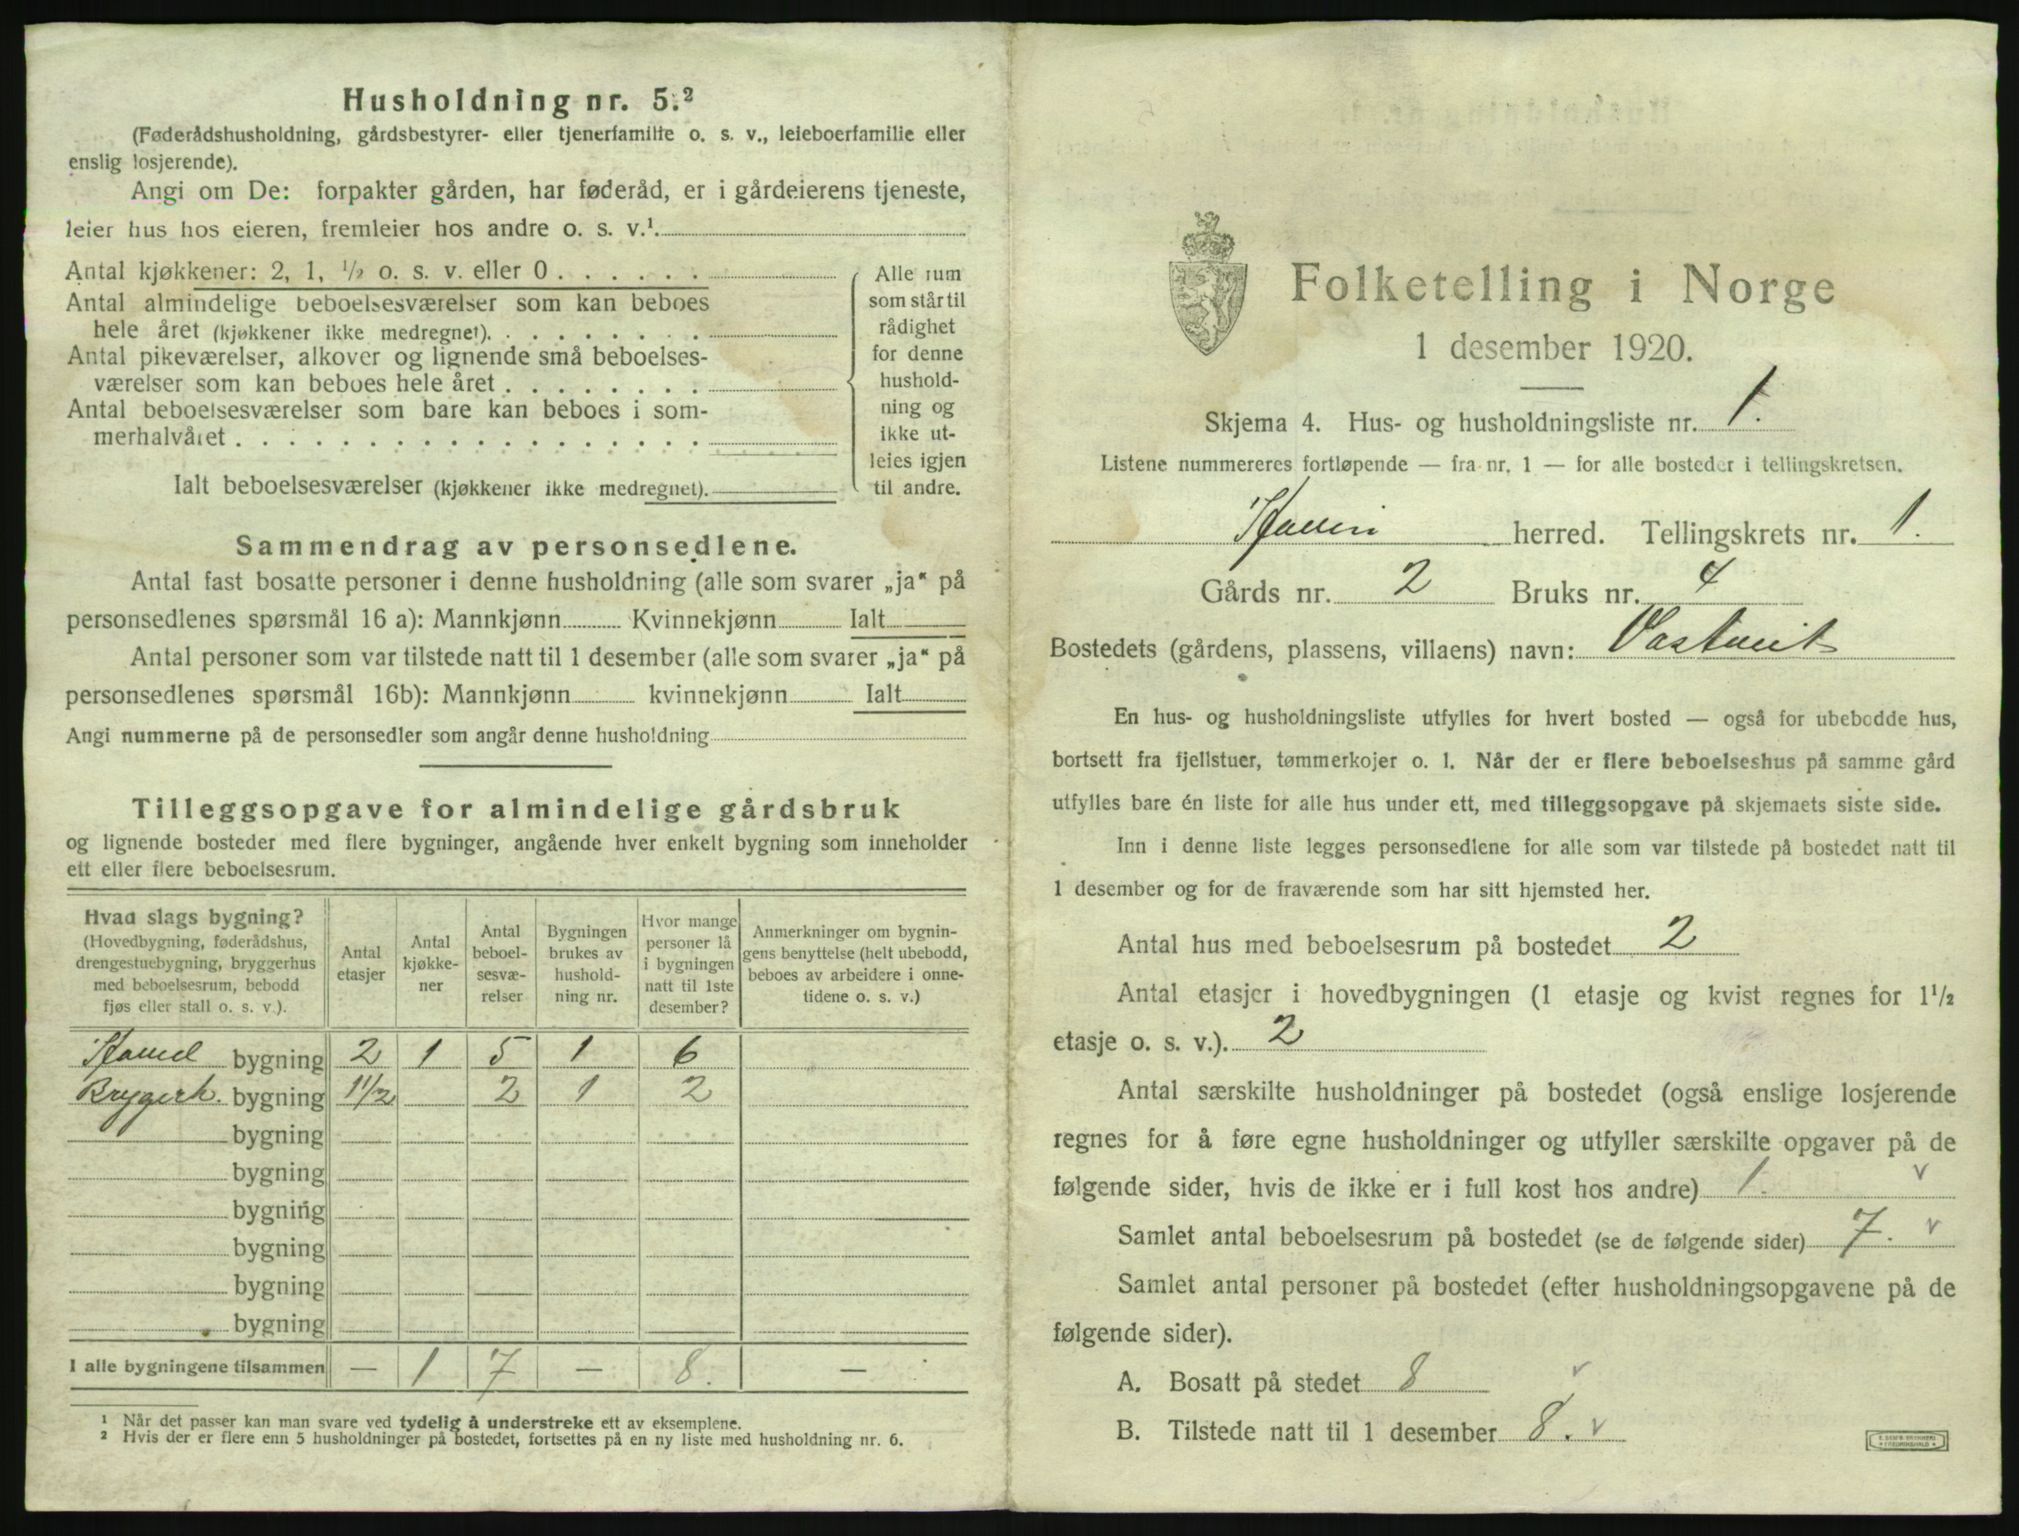 Husholdning nr. 5.²
(Føderådshusholdning, gårdsbestyrer- eller tjenerfamilie o. s. v., leieboerfamilie eller
enslig losjerende).
Angi om De: forpakter gården, har føderåd, er i gårdeierens tjeneste,
leier hus hos eieren, fremleier hos andre o. s. v.¹
Antal kjøkkener: 2, 1, ½ o. s. v. eller 0 . . . . . .
Antal almindelige beboelsesværelser som kan beboes
hele året (kjøkkener ikke medregnet). . . . . . . . .
Antal pikeværelser, alkover og lignende små beboelses-
værelser som kan beboes hele året . . . . . . . .
Antal beboelsesværelser som bare kan beboes i som-
merhalvåret . . . . . . . . . . . . . . . . . .
Ialt beboelsesværelser (kjøkkener ikke medregnet).
Alle rum
som står til
rådighet
for denne
hushold-
ning og
ikke ut-
leies igjen
til andre.
Sammendrag av personsedlene.
Antal fast bosatte personer i denne husholdning (alle som svarer „ja“ på
personsedlenes spørsmål 16 a): Mannkjønn Kvinnekjønn Ialt
Antal personer som var tilstede natt til 1 desember (alle som svarer „ja“ på
personsedlenes spørsmål 16b): Mannkjønn kvinnekjønn Ialt
Angi nummerne på de personsedler som angår denne husholdning
Tilleggsopgave for almindelige gårdsbruk
og lignende bosteder med flere bygninger, angående hver enkelt bygning som inneholder
ett eller flere beboelsesrum.
Hvad slags bygning?
(Hovedbygning, føderådshus,
drengestuebygning, bryggerhus
med beboelsesrum, bebodd
fjøs eller stall o. s. v.).
Antal
etasjer
Antal
kjøkke-
ner
Antal
beboel-
sesvæ-
relser
Bygningen
brukes av
hushold-
ning nr.
Hvor mange
personer lå
i bygningen
natt til 1ste
desember?
Anmerkninger om bygnin-
gens benyttelse (helt ubebodd,
beboes av arbeidere i onne-
tidene o. s. v.)
Hoved bygning 2 1 5 1 6
Bryggerh. bygning 1½ 2 1 2
bygning
bygning
bygning
bygning
bygning
bygning
I alle bygningene tilsammen — 1 7 — 8. —
¹ Når det passer kan man svare ved tydelig å understreke ett av eksemplene.
² Hvis der er flere enn 5 husholdninger på bostedet, fortsettes på en ny liste med husholdning nr. 6.
Folketelling i Norge
1 desember 1920.
Skjema 4. Hus- og husholdningsliste nr. 1.
Listene nummereres fortløpende — fra nr. 1 — for alle bosteder i tellingskretsen.
Hovin herred. Tellingskrets nr. 1.
Gårds nr. 2 Bruks nr. 4
Bostedets (gårdens, plassens, villaens) navn: Vastveit
En hus- og husholdningsliste utfylles for hvert bosted — også for ubebodde hus,
bortsett fra fjellstuer, tømmerkojer o. l. Når der er flere beboelseshus på samme gård
utfylles bare én liste for alle hus under ett, med tilleggsopgave på skjemaets siste side.
Inn i denne liste legges personsedlene for alle som var tilstede på bostedet natt til
1 desember og for de fraværende som har sitt hjemsted her.
Antal hus med beboelsesrum på bostedet 2
Antal etasjer i hovedbygningen (1 etasje og kvist regnes for 1½
etasje o. s. v.). 2
Antal særskilte husholdninger på bostedet (også enslige losjerende
regnes for å føre egne husholdninger og utfyller særskilte opgaver på de
følgende sider, hvis de ikke er i full kost hos andre) 1. v
Samlet antal beboelsesrum på bostedet (se de følgende sider) 7. v
Samlet antal personer på bostedet (efter husholdningsopgavene på de
følgende sider).
A. Bosatt på stedet 8 v
B. Tilstede natt til 1 desember 8. v